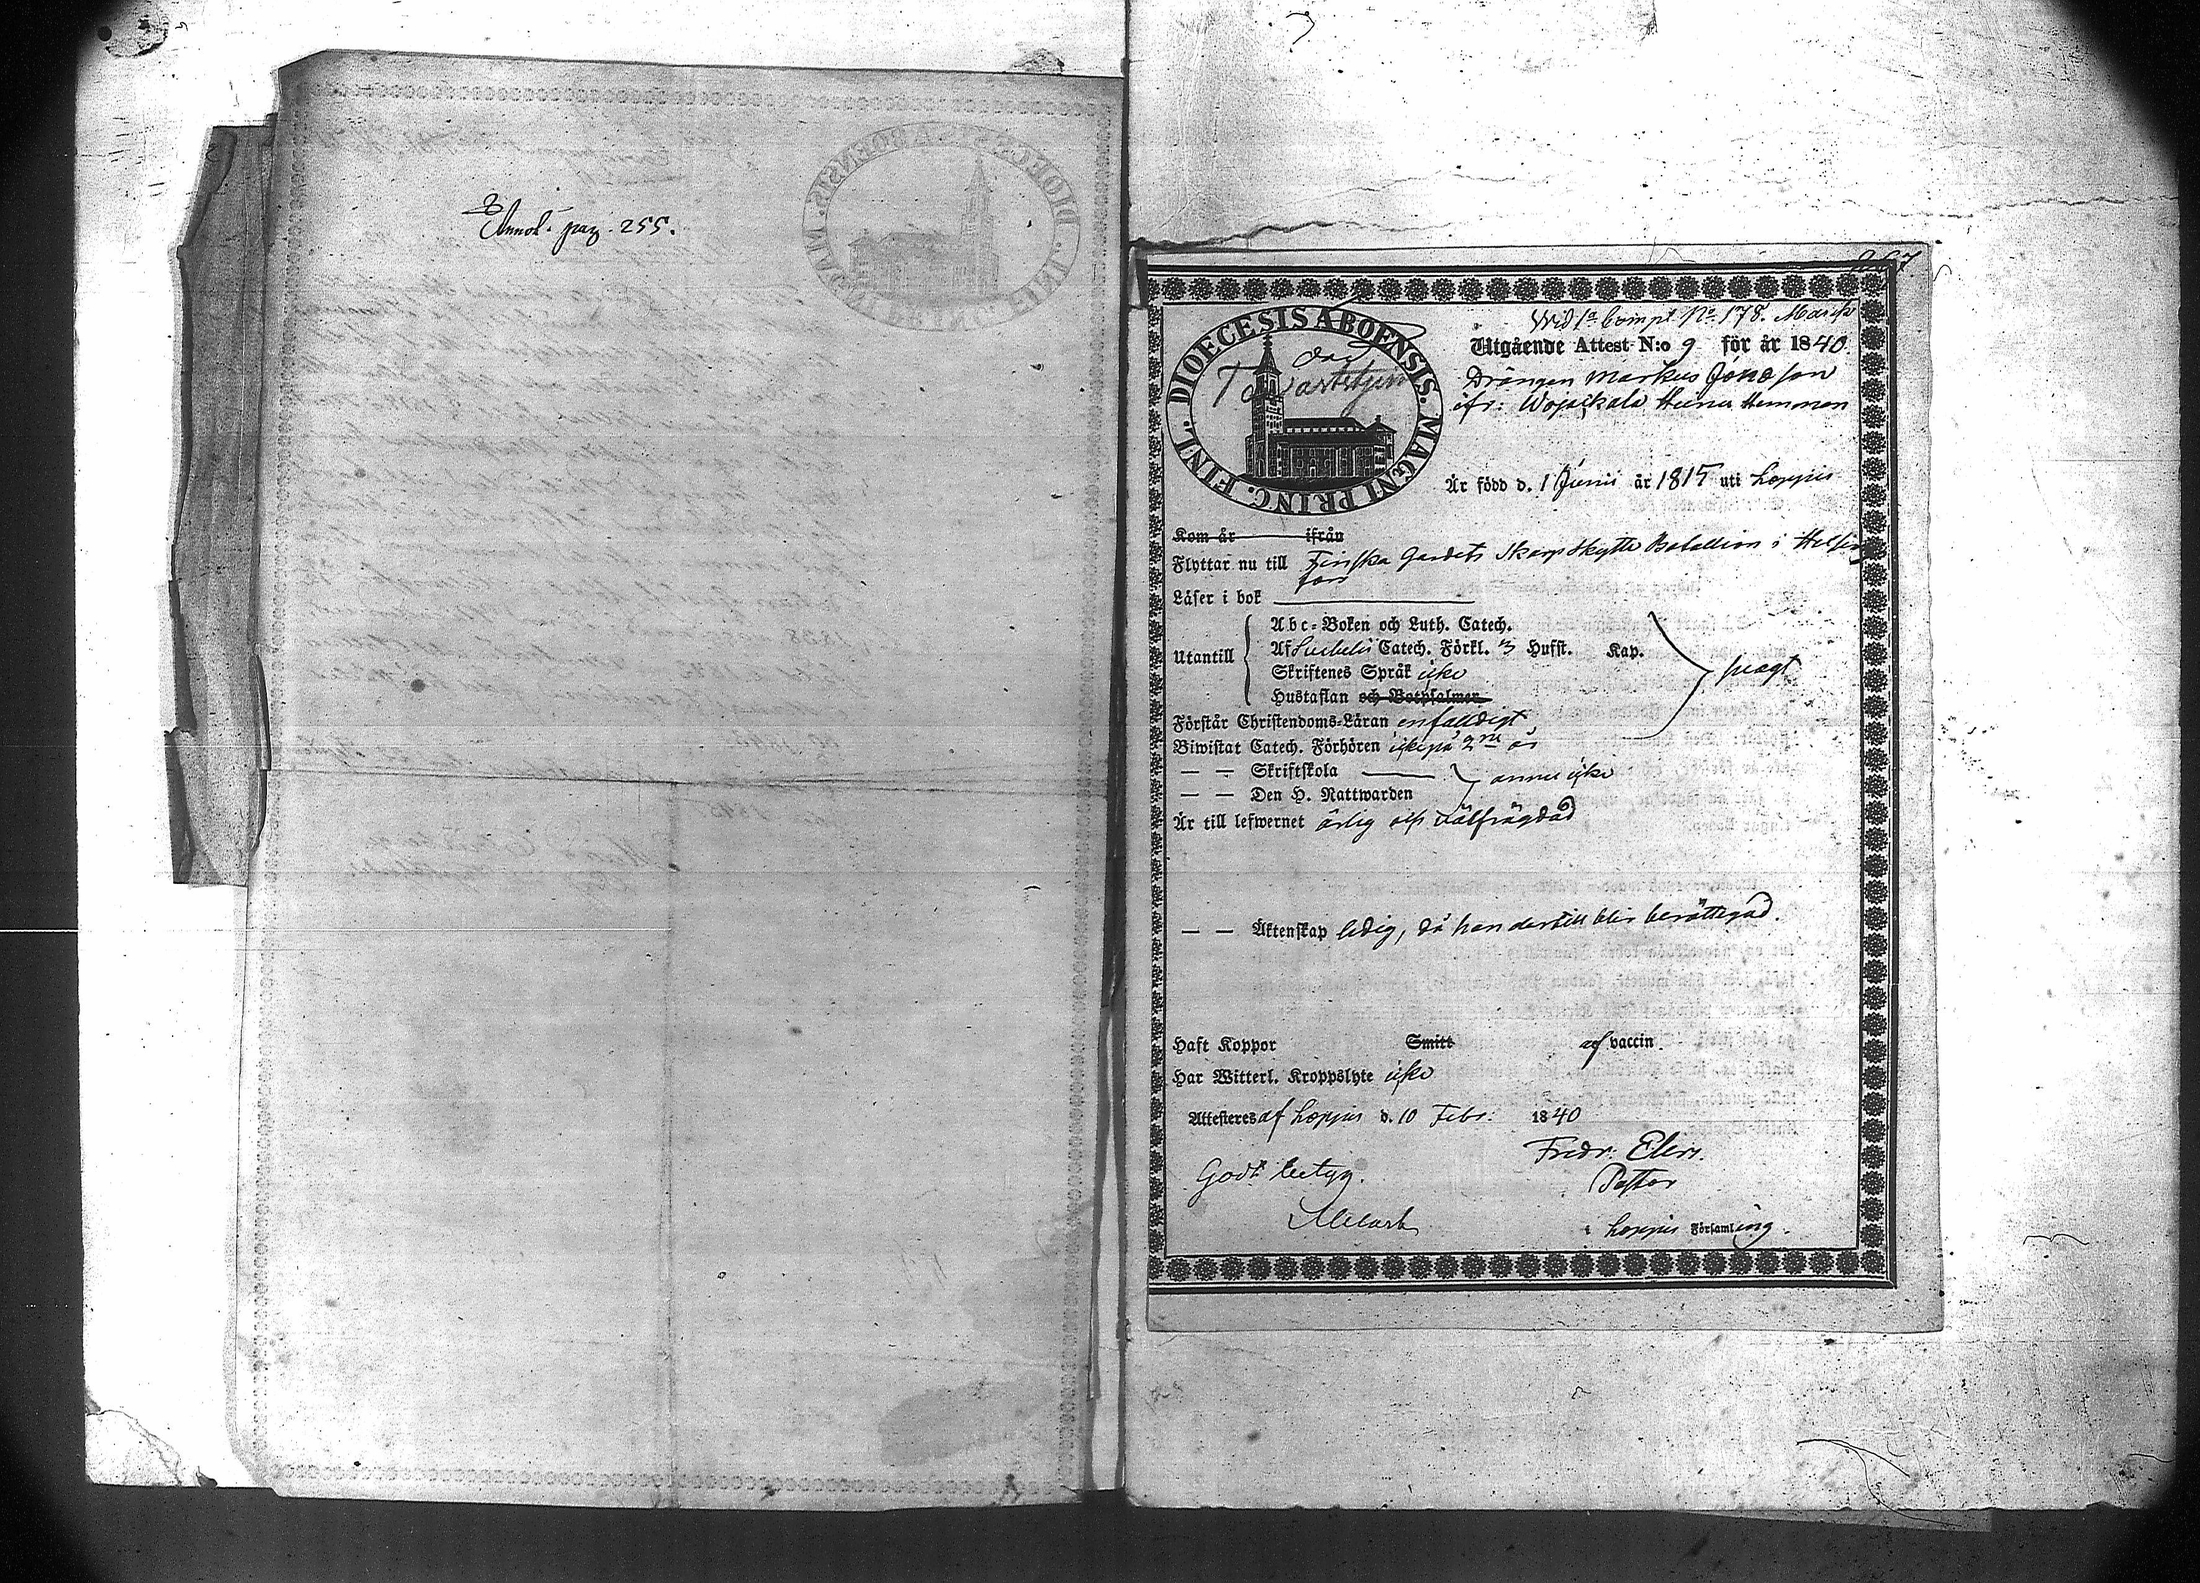 Annot. pag. 255.
267
Wid 1a Compt No 178.
Utgående Attest N:o 9 för år 1840.
Drängen Markus Jönsson
ifr: Wojakala Heina Hemman
DIOECESIS ABOENSIS. MAGNI PRINC. FINL.
Är född d. 1 Junii år 1815 uti Loppis
Kom år ifrån
Flyttar nu till Finska Gardets Skarp Skytte Batallion i Helsing
fors
Läser i bok
Abc-Boken och Luth. Catech.
Utantill Af Svebelii Catech. Förkl. 3 Hufst. Kap. svagt
Skriftenes Språk icke
Hustaflan och Botpsalmer
Förstår Christendoms-Läran enfalldigt
Biwistat Catech. Förhören icke på 2ne år
— — Skriftskola
— — Den H. Nattwarden annu icke
Är till lefwernet ärlig och välfrägdad
— — Äktenskap ledig, då han dertill blir berättigad.
Haft Koppor Smitt af vaccin.
Har Witterl. Kroppslyte icke
Attesteres af Loppis d. 10 Febr: 1840
Fredr: Elers.
Pastor
Godt betyg.
i Loppis Församling.